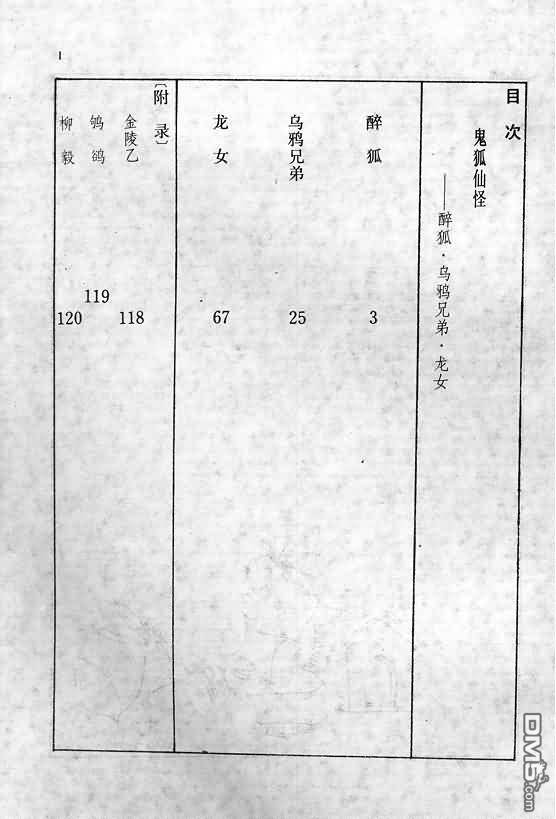 1
目次
鬼狐仙怪
——醉狐·乌鸦兄弟·龙女
醉狐 3
乌鸦兄弟 25
龙女 67
〔附录〕
金陵乙 118
鸲鹆 119
柳毅 120
DM5.com